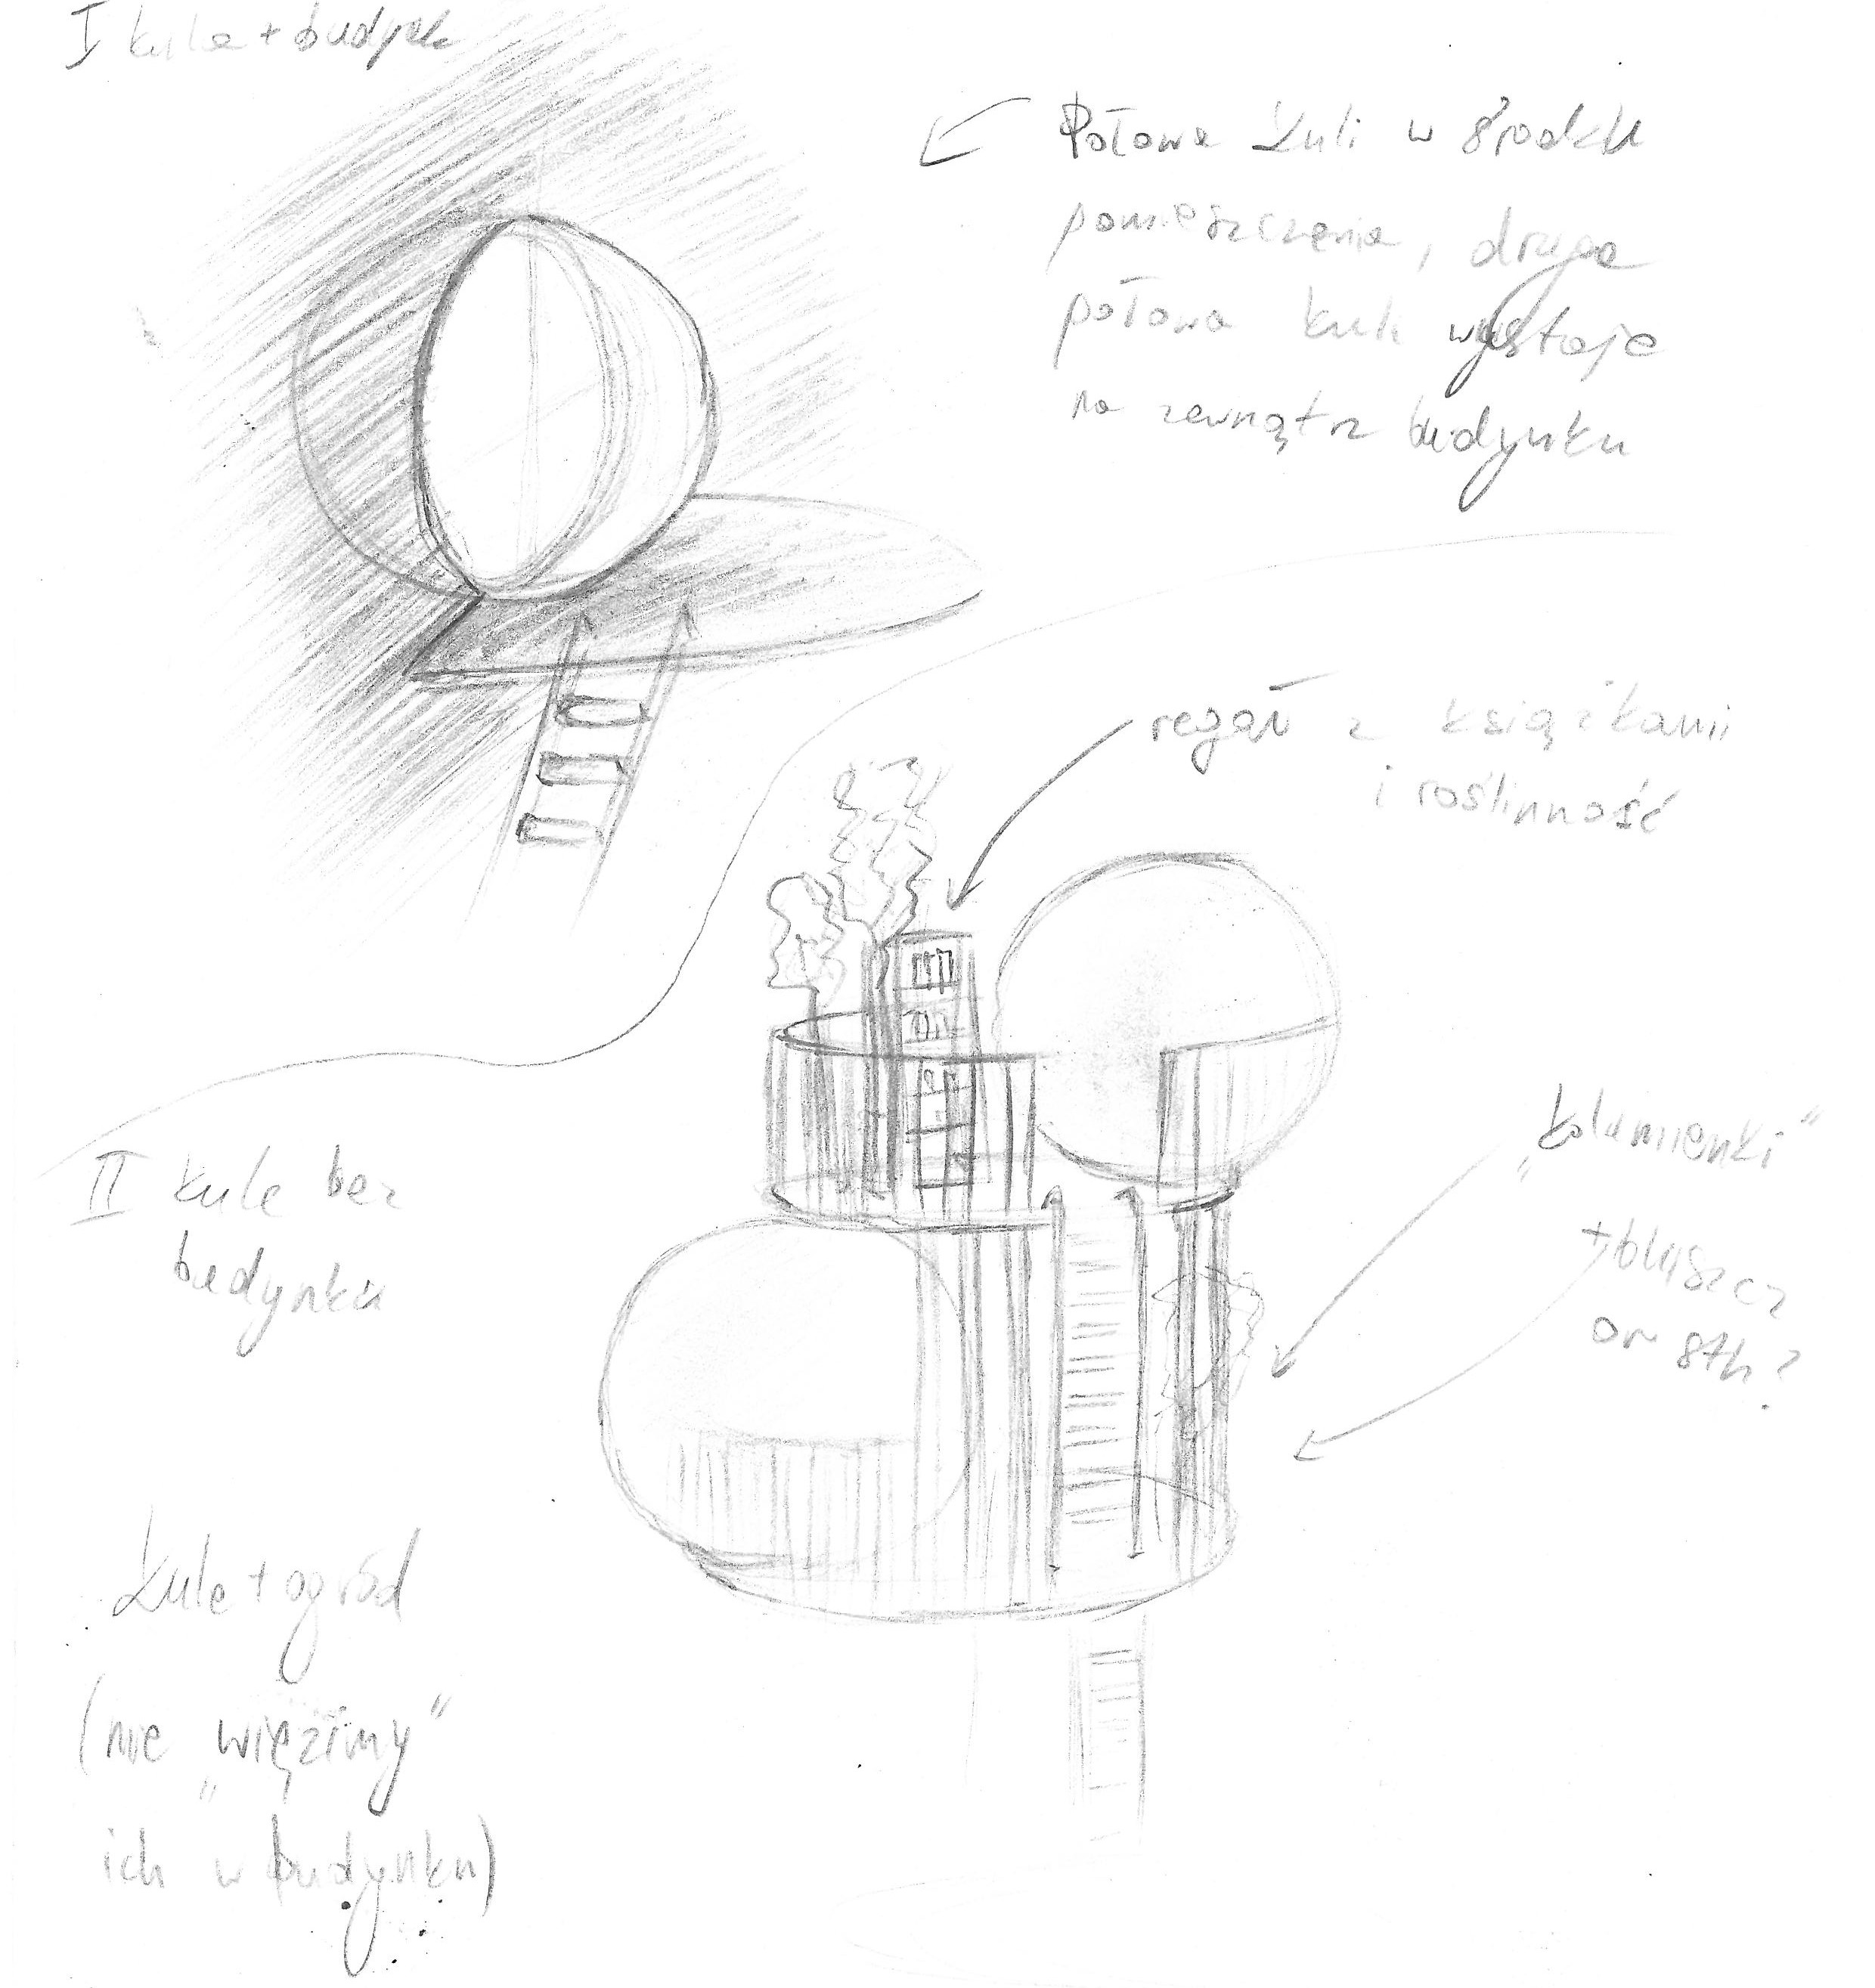 I kula + budynek
Połowa kuli w środku
pomieszczenia, druga
połowa kuli wystaje
na zewnątrz budynku
regał z książkami
i roślinność
II kule bez
budynku
"kolumienki"
+ bluszcz
or sth?
kule + ogród
(nie "więzimy"
ich w budynku)